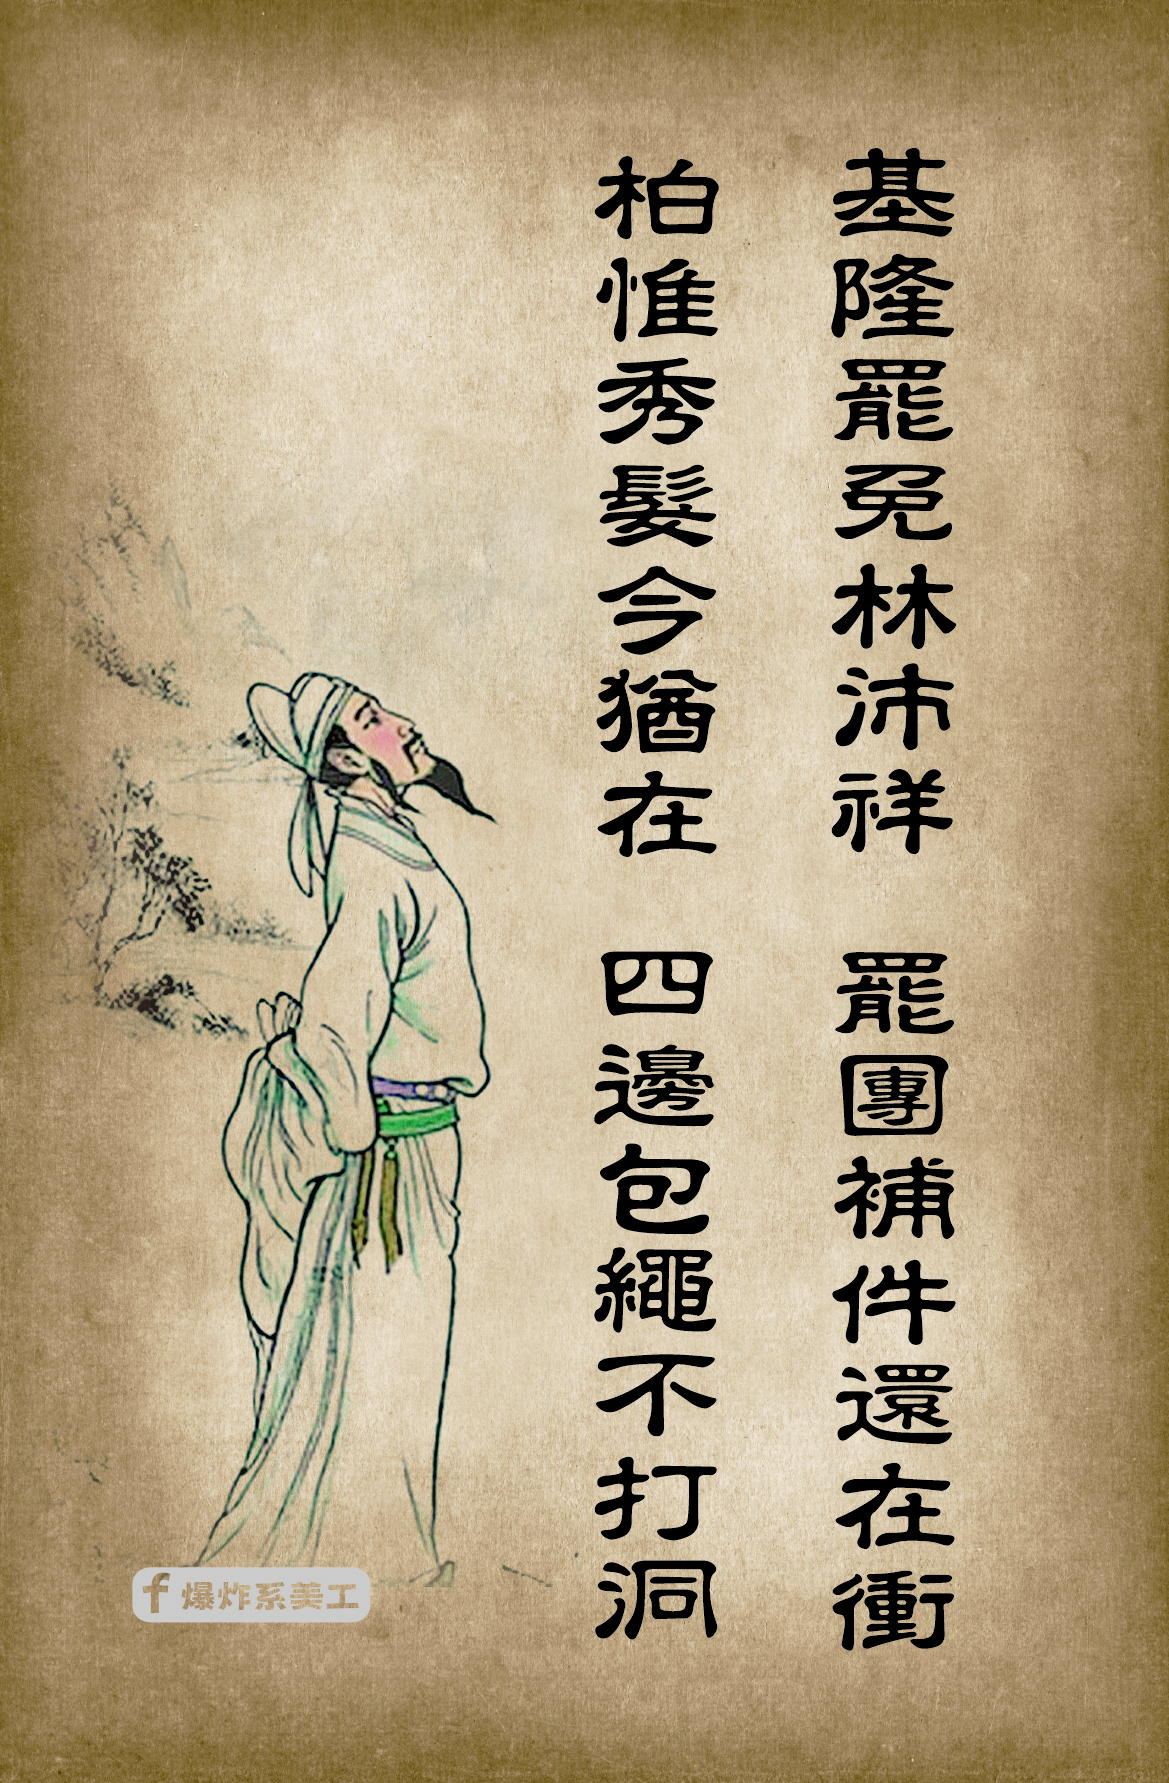 基隆罷免林沛祥 罷團補件還在衝
柏惟秀髮今猶在 四邊包繩不打洞
f 爆炸系美工